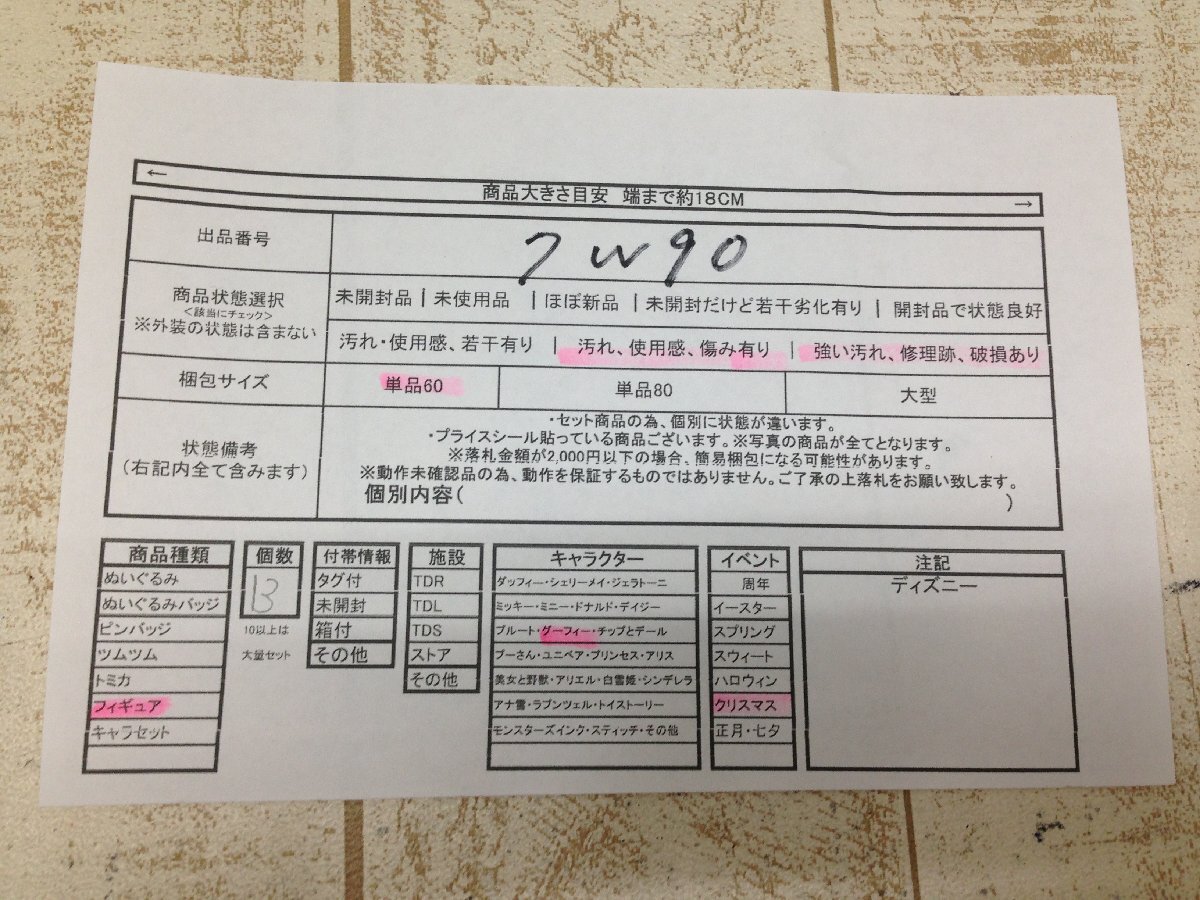 ←
商品大きさ目安 端まで約18CM
→
出品番号
7W90
商品状態選択
<該当にチェック>
※外装の状態は含まない
未開封品 | 未使用品 | ほぼ新品 | 未開封だけど若干劣化有り | 開封品で状態良好
汚れ・使用感、若干有り | 汚れ、使用感、傷み有り | 強い汚れ、修理跡、破損あり
梱包サイズ
単品60
単品80
大型
状態備考
(右記内全て含みます)
・セット商品の為、個別に状態が違います。
・プライスシール貼っている商品ございます。※写真の商品が全てとなります。
※落札金額が2,000円以下の場合、簡易梱包になる可能性があります。
※動作未確認品の為、動作を保証するものではありません。ご了承の上落札をお願い致します。
個別内容( )
商品種類
ぬいぐるみ
ぬいぐるみバッジ
ピンバッジ
ツムツム
トミカ
フィギュア
キャラセット
個数
13
10以上は
大量セット
付帯情報
タグ付
未開封
箱付
その他
施設
TDR
TDL
TDS
ストア
その他
キャラクター
ダッフィー・シェリーメイ・ジェラトーニ
ミッキー・ミニー・ドナルド・デイジー
プルート・グーフィー・チップとデール
プーさん・ユニベア・プリンセス・アリス
美女と野獣・アリエル・白雪姫・シンデレラ
アナ雪・ラプンツェル・トイストーリー
モンスターズインク・スティッチ・その他
イベント
周年
イースター
スプリング
スウィート
ハロウィン
クリスマス
正月・七夕
注記
ディズニー